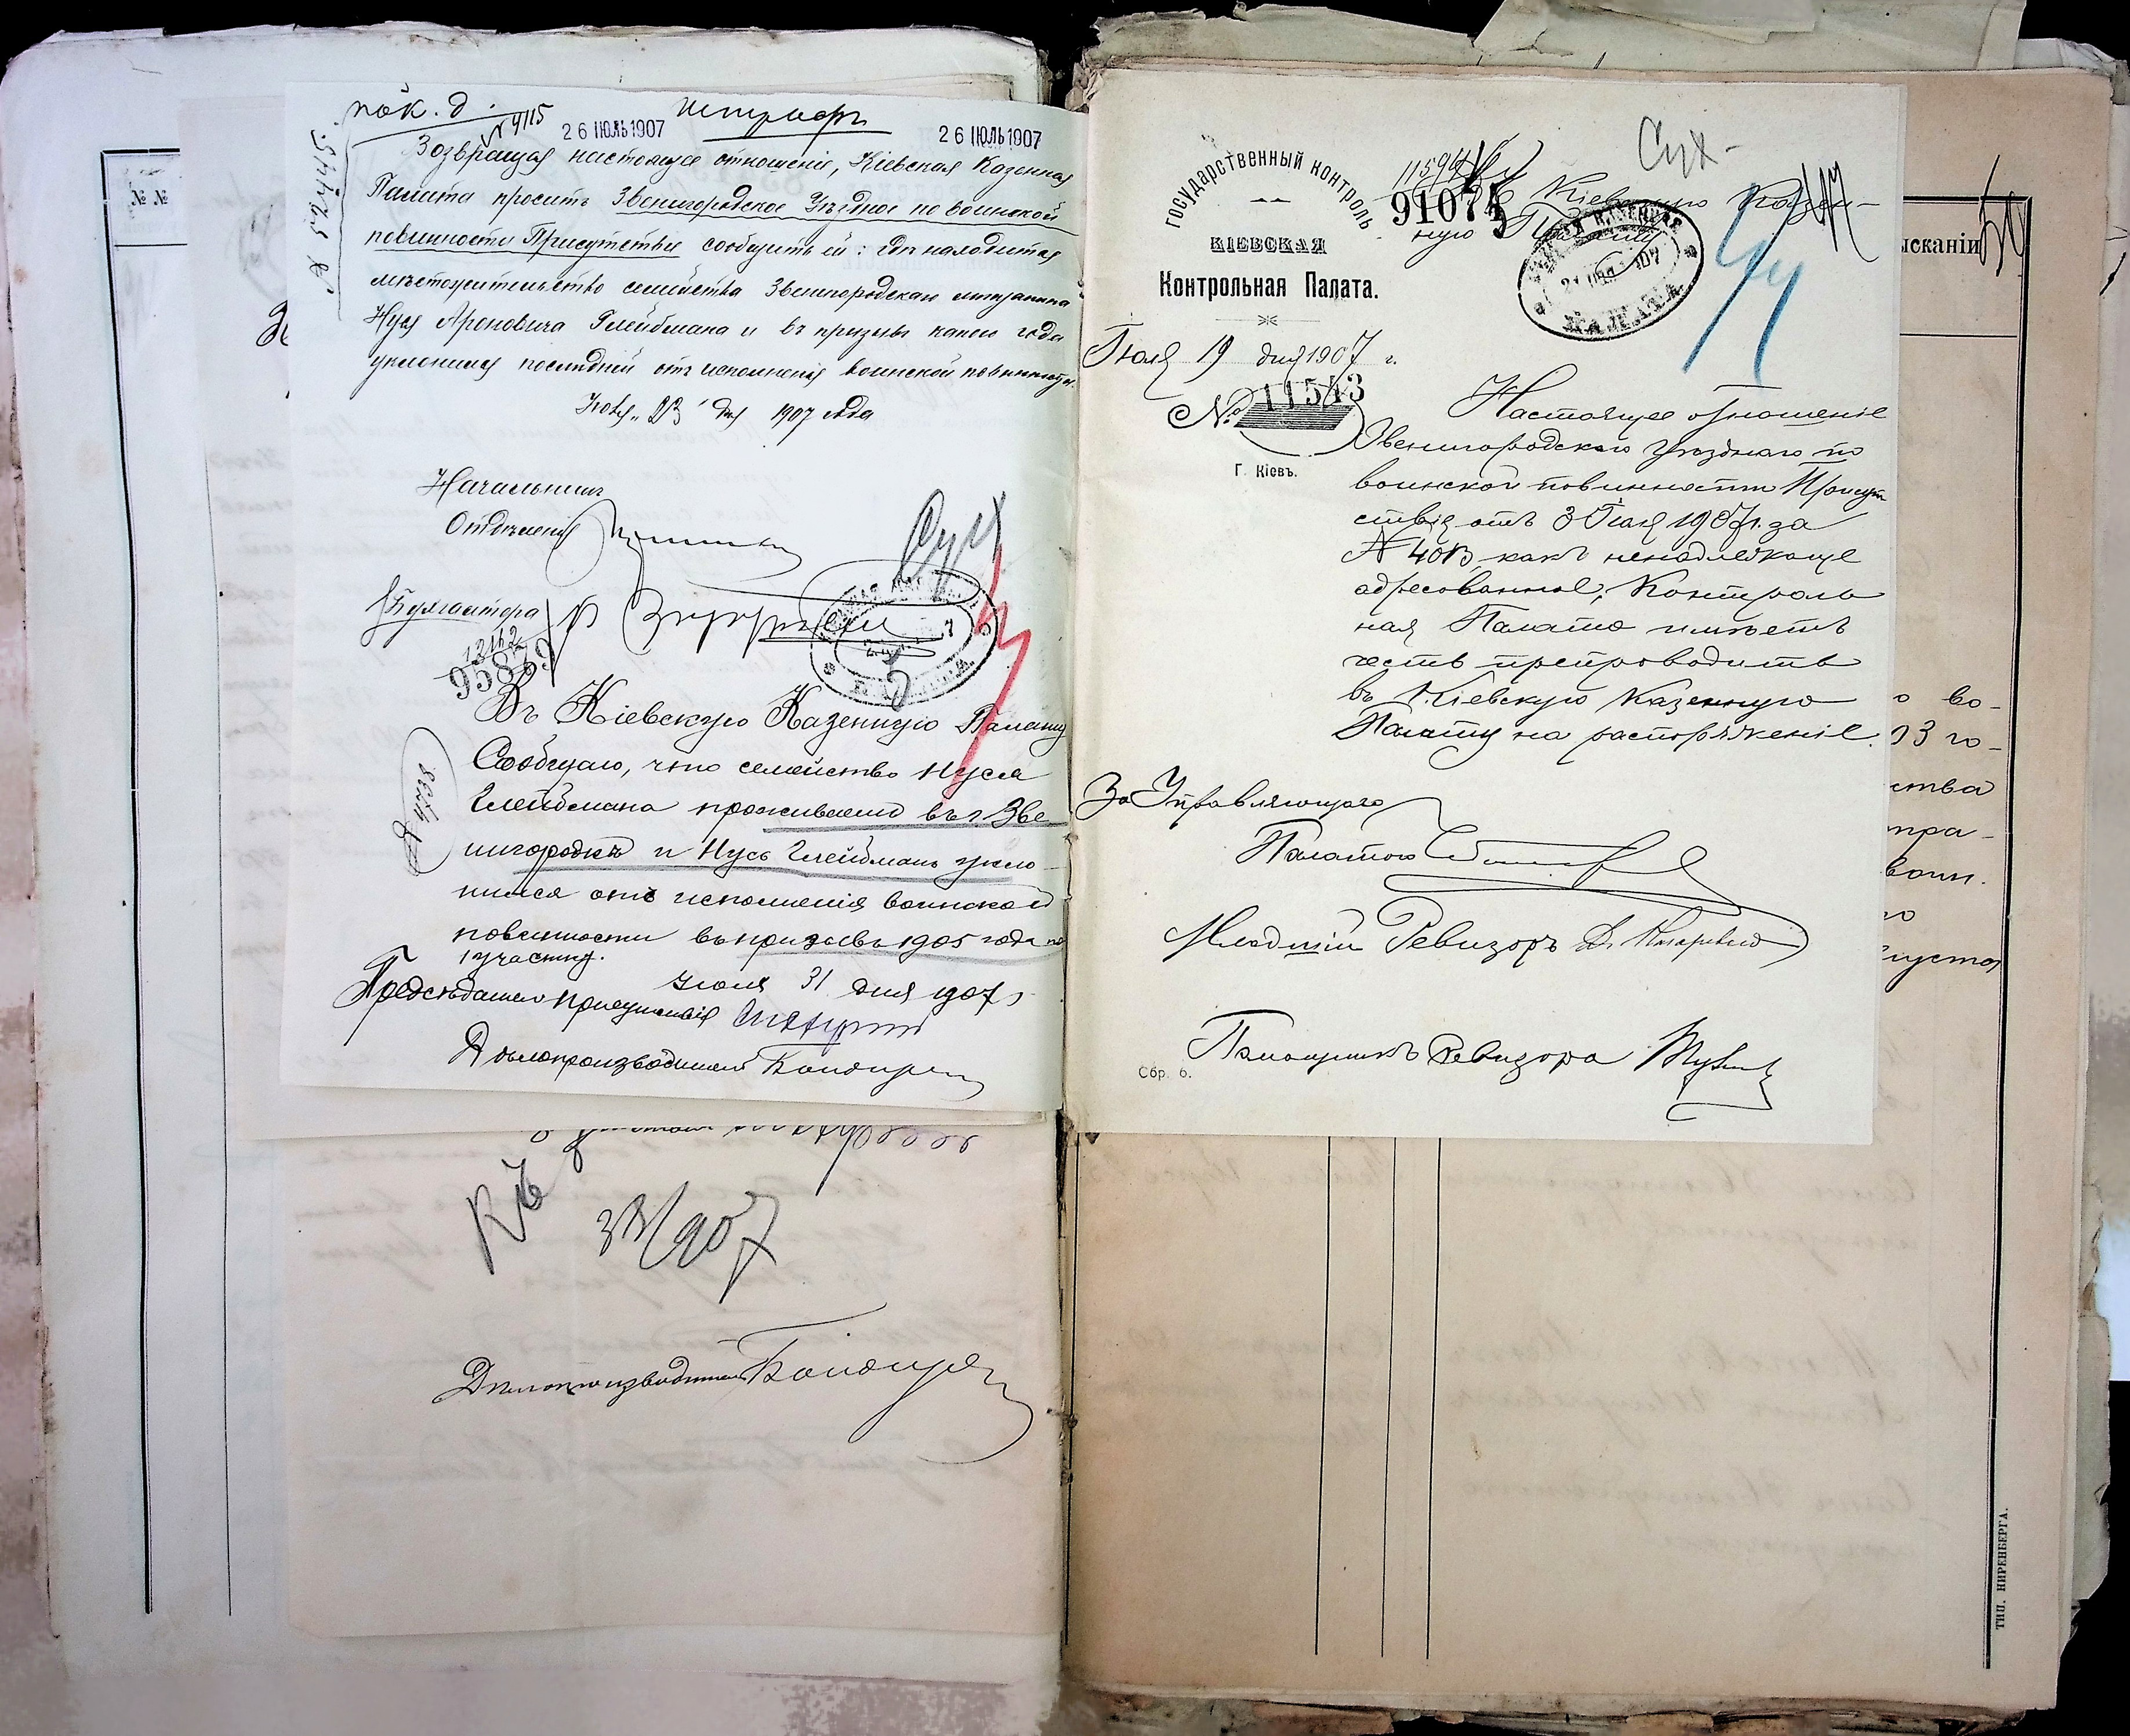 № №
№ 4115
26 ІЮЛЬ 1907
Штрафъ
26 ІЮЛЬ 1907
Возвращая настоящее отношеніе, Кіевская Казенная
Палата проситъ Звенигородское Уѣздное по воинской
повинности Присутствіе сообщить ей: гдѣ находится
мѣстожительство семейства Звенигородскаго мѣщанина
Нуся Ароновича Глейбмана и въ призывъ какого года
уклонился послѣдній отъ исполненія воинской повинности.
Іюля „23" дня 1907 года
Начальникъ
Отдѣленія
Бухгалтера
95879
Въ Кіевскую Казенную Палату
Сообщаю, что семейство Нуся
Глейбмана проживаетъ въ г. Зве
нигородкѣ и Нусь Глейбманъ укло
нился отъ исполненія воинской
повинности въ призывъ 1905 года по
1 участку.
Іюля 31 дня 1907 г.
Предсѣдатель Присутствія
Дѣлопроизводитель
№ 4738
Къ
Дѣлопроизводитель
ГОСУДАРСТВЕННЫЙ КОНТРОЛЬ
КІЕВСКАЯ
Контрольная Палата.
Іюля 19 дня 1907 г.
№ 11543
Г. Кіевъ.
91075
Сух-
Въ Кіевскую Казен-
ную Палату
Настоящее отношеніе
Звенигородскаго уѣзднаго по
воинской повинности Присут
ствія отъ 3 Іюля 1907 г. за
№ 4013, какъ ненадлежаще
адресованное, Контроль
ная Палата имѣетъ
честь препроводить
въ Кіевскую Казенную
Палату на распоряженіе.
За Управляющаго
Палатою
Младшій Ревизоръ
Помощникъ Ревизора
Сбр. 6.
ысканіи
о во-
03 го-
ства
пра-
воин.
го
густа
ТИП. НИРЕНБЕРГА.